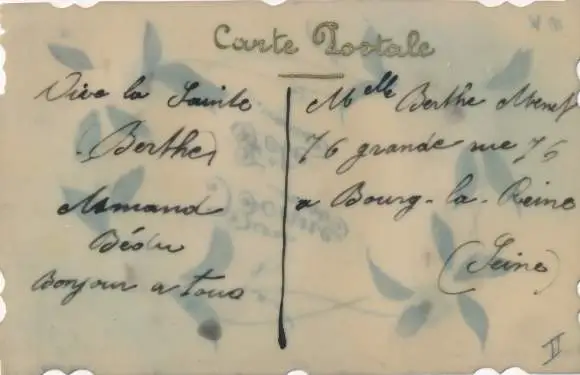 Carte Postale
Vive la Sainte
(Berthe)
Armand
Bédu
Bonjour a tous
Mlle Berthe
76 grande rue 76
a Bourg-la-Reine
(Seine)
II